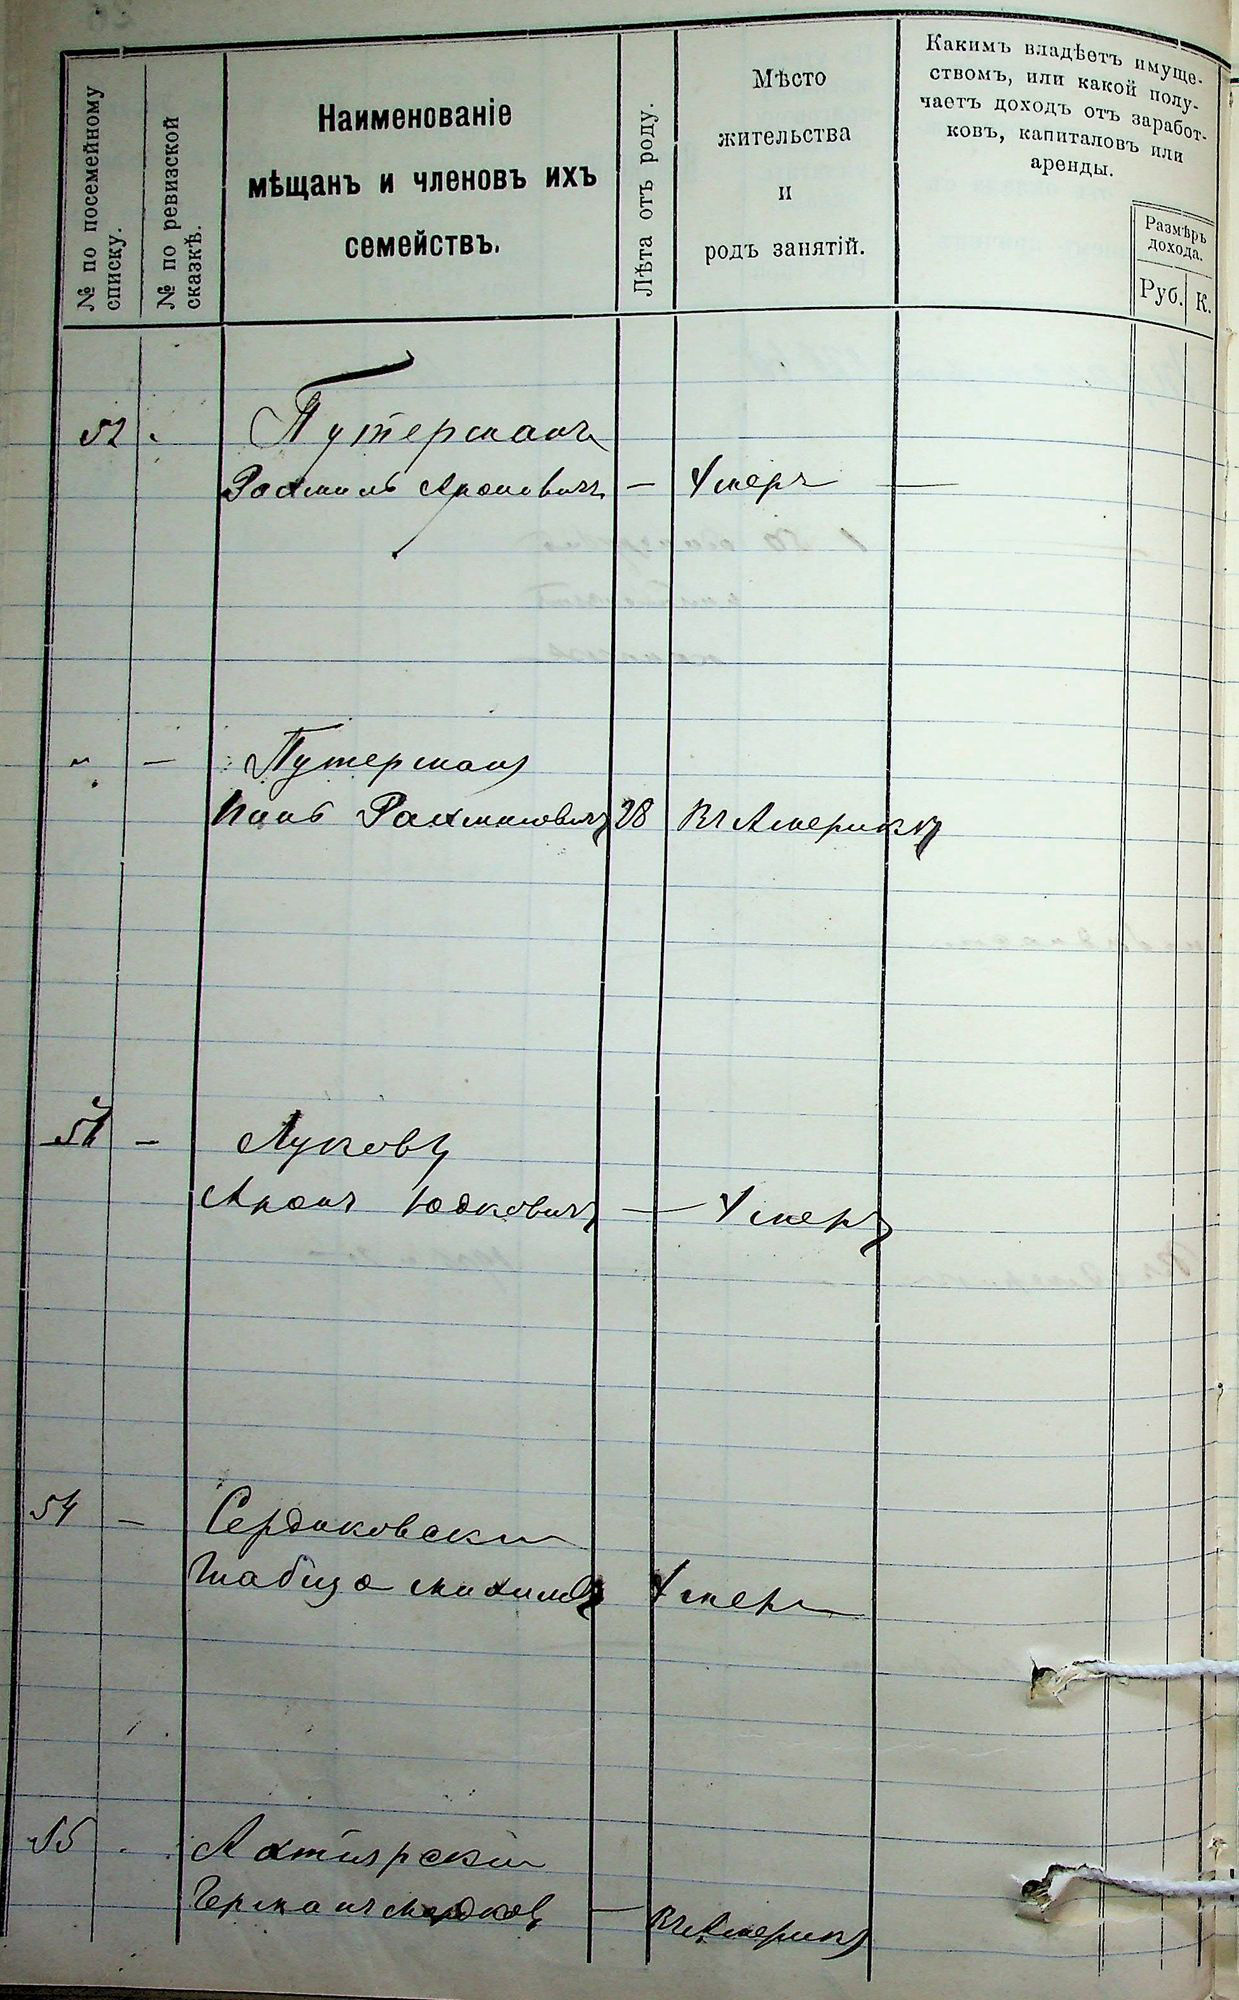 № по посемейному
списку.
№ по ревизской
сказкѣ.
Наименованіе
мѣщанъ и членовъ ихъ
семействъ.
Лѣта отъ роду.
Мѣсто
жительства
и
родъ занятій.
Какимъ владѣетъ имуще-
ствомъ, или какой полу-
чаетъ доходъ отъ заработ-
ковъ, капиталовъ или
аренды.
Размѣръ
дохода.
Руб. К.
52 Путерманъ
Рахмиль Ароновичъ — Умеръ —
— Путерманъ
Рахмилевичъ 28 Въ Америкѣ
— Луковъ
Аронъ Юдковичъ — Умеръ
54 —
Умеръ
55 Ахтырскій
— Въ Америкѣ